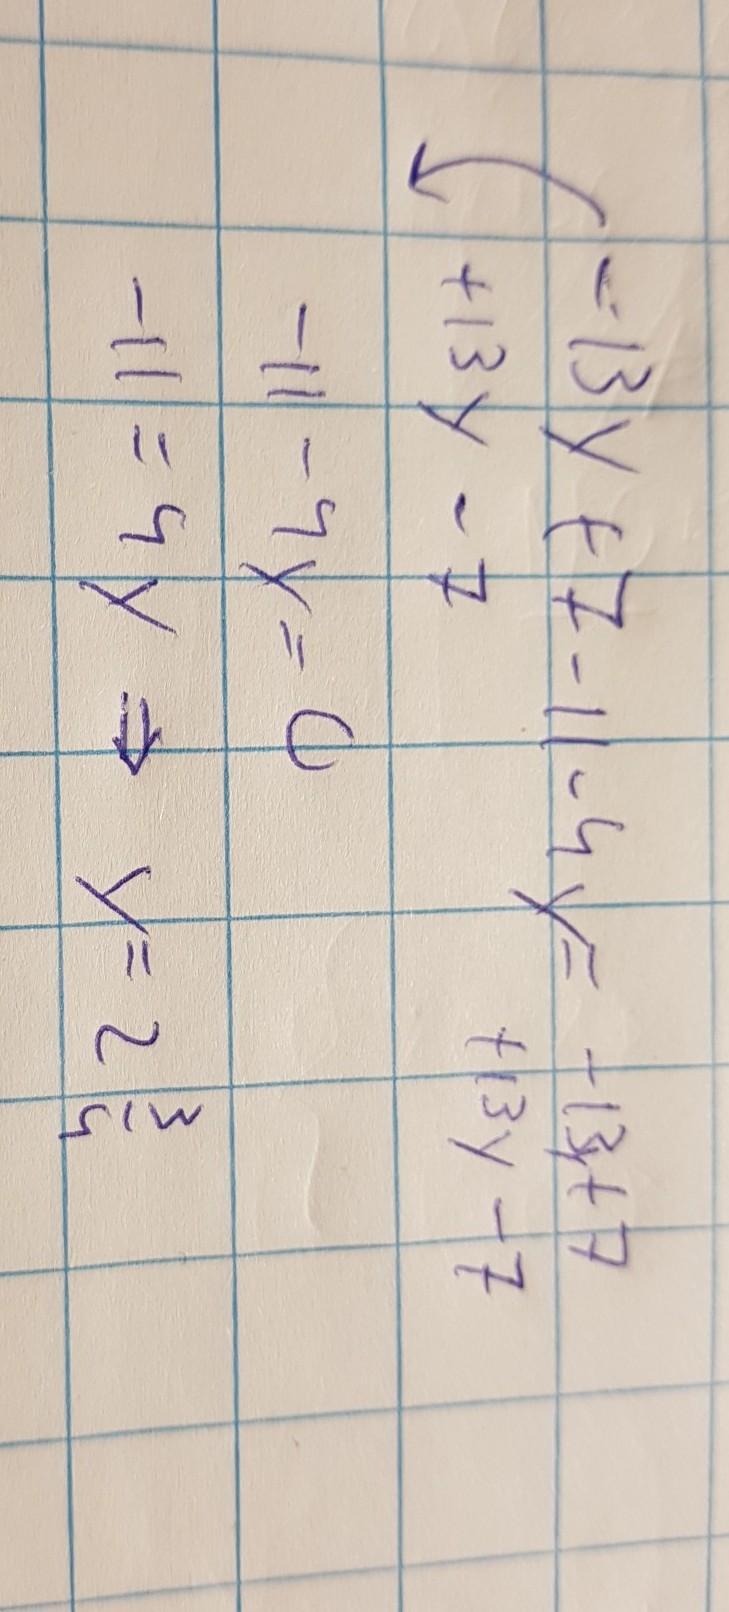 -13y+7-11-4y= -13y+7
+13y-7 +13y-7
-11-4y=0
-11=4y ⇒ y=2 3/4